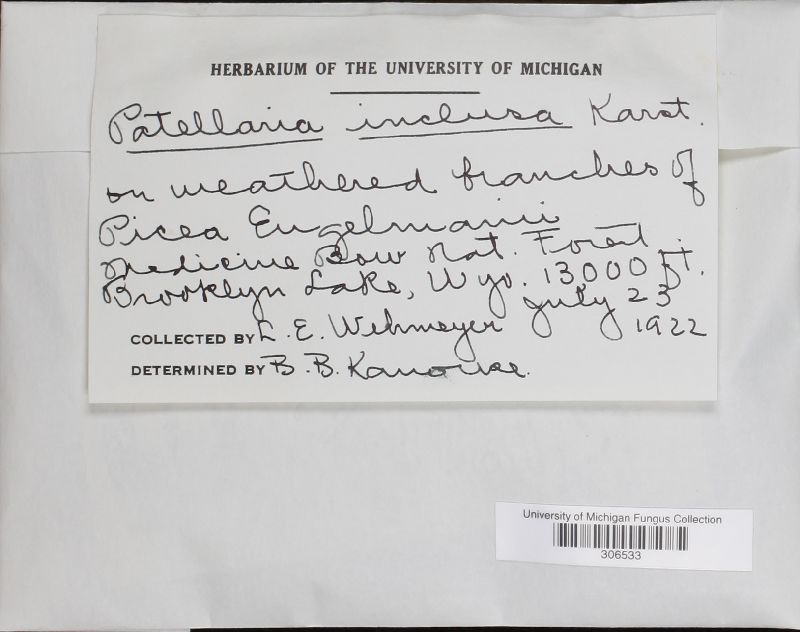 HERBARIUM OF THE UNIVERSITY OF MICHIGAN
Patellaria inclusa Karst.
on weathered branches of
Picea Engelmanii
Medicine Bow Nat. Forest
Brooklyn Lake, Wyo. 13000 ft.
July 23
1922
COLLECTED BY L. E. Wehmeyer
DETERMINED BY B. B. Kanouse.
University of Michigan Fungus Collection
306533